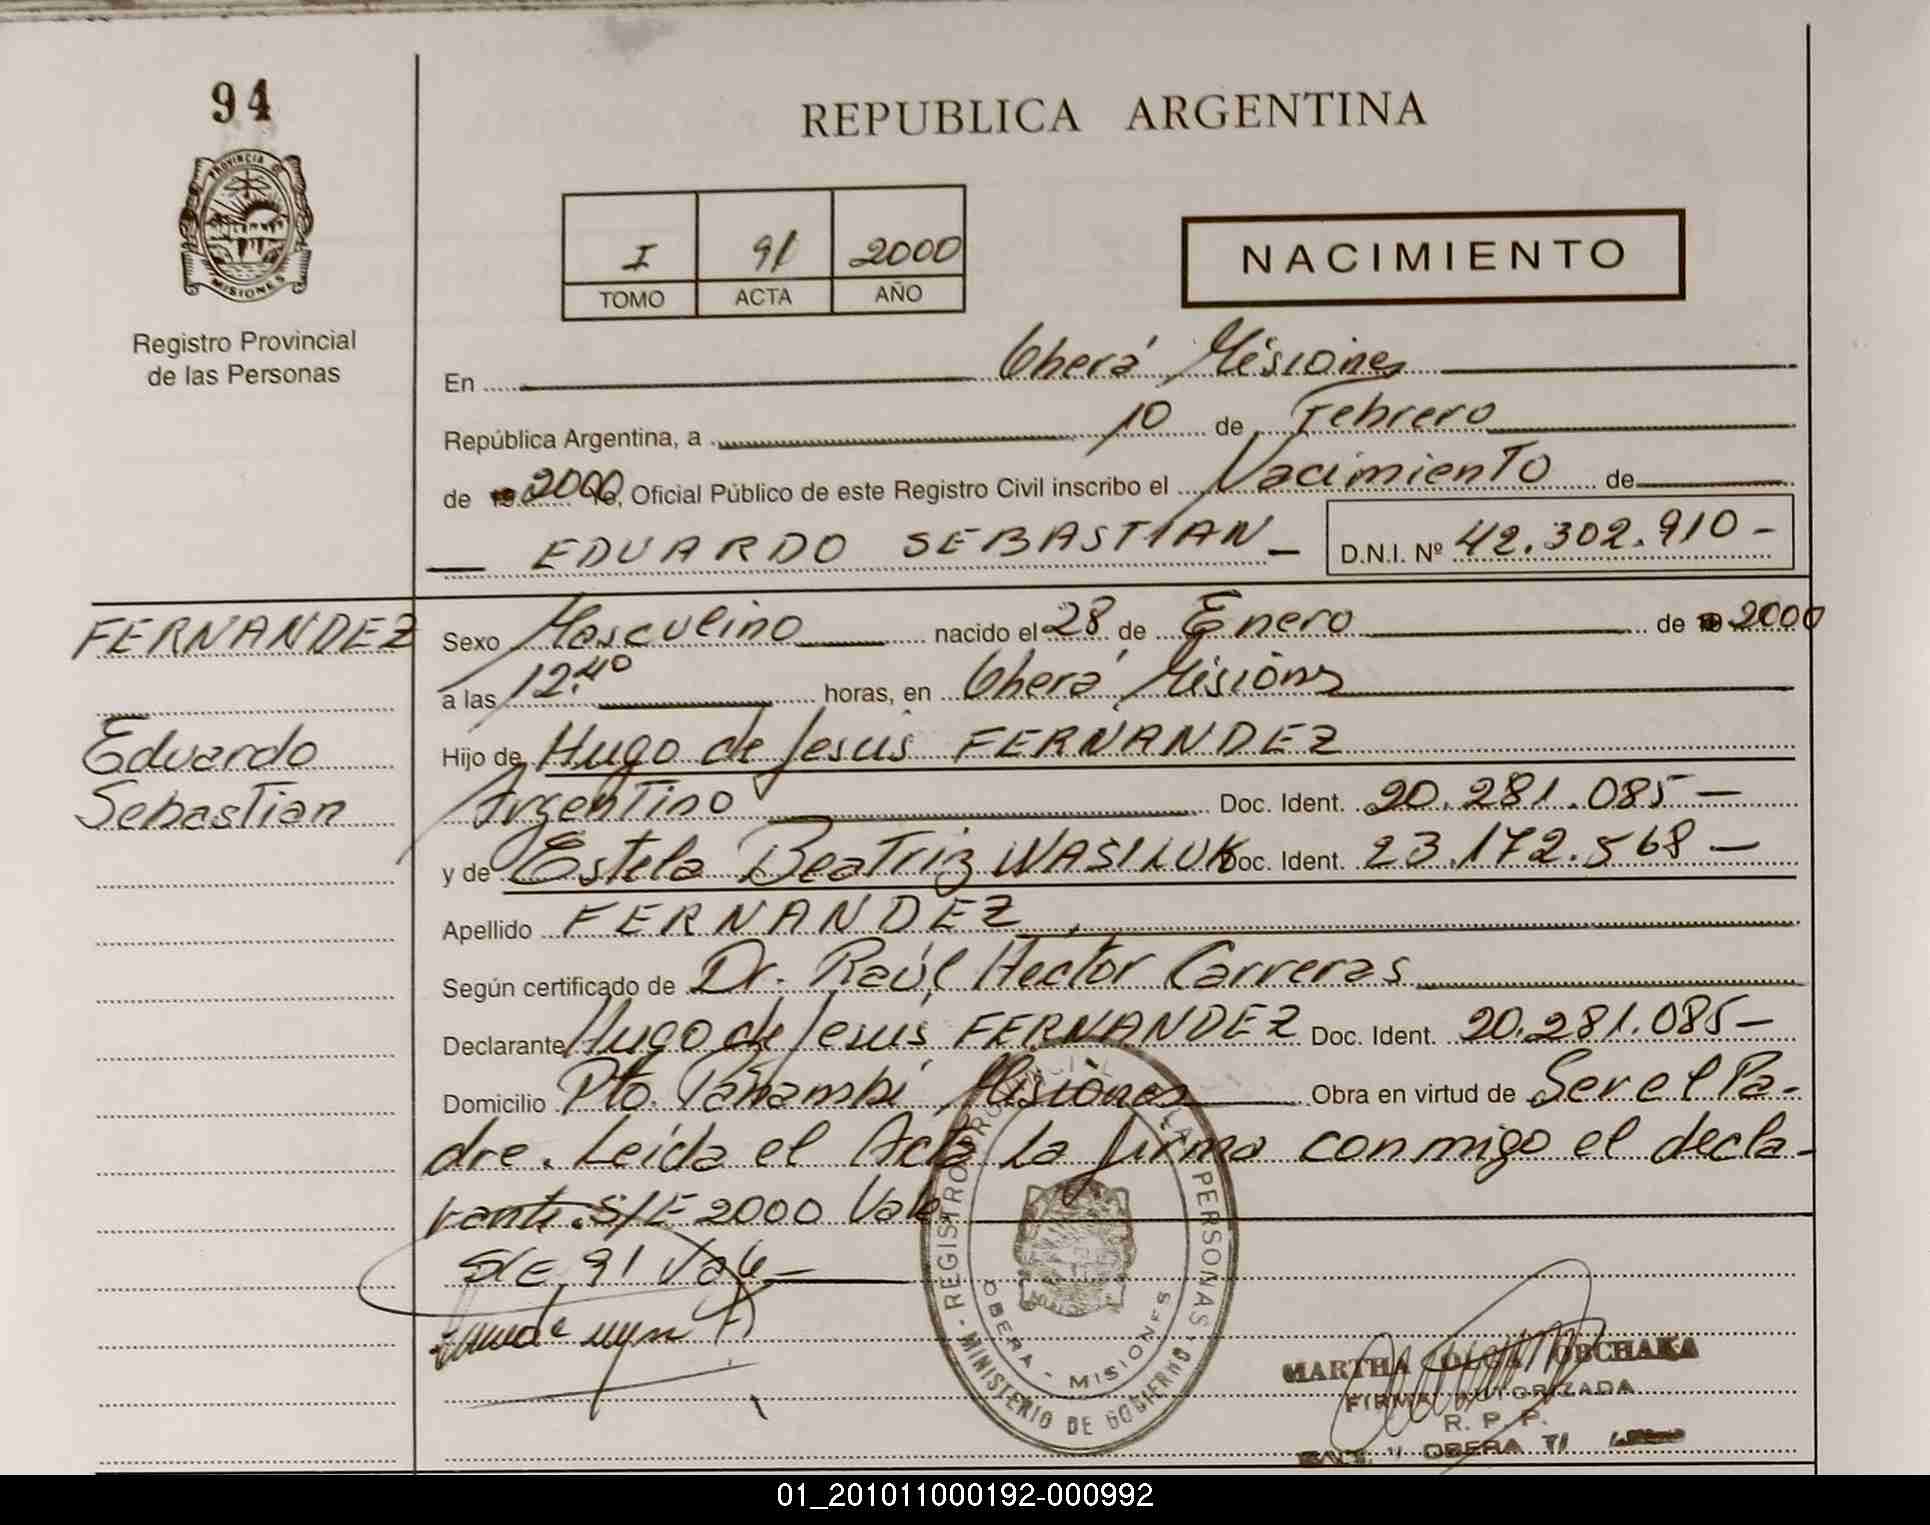 94
PROVINCIA DE
MISIONES
Registro Provincial
de las Personas
REPUBLICA ARGENTINA
I 91 2000
TOMO ACTA AÑO
NACIMIENTO
En Oberá Misiones
República Argentina, a 10 de Febrero
de 19 2000 Yo, Oficial Público de este Registro Civil inscribo el Nacimiento de
EDUARDO SEBASTIAN D.N.I. Nº 42.302.910-
FERNANDEZ
Eduardo
Sebastian
Sexo Masculino nacido el 28 de Enero de 19 2000
a las 12.40 horas, en Oberá Misiones
Hijo de Hugo de Jesús FERNANDEZ
Argentino Doc. Ident. 20.281.085-
y de Estela Beatriz WASILUK Doc. Ident. 23.172.568-
Apellido FERNANDEZ
Según certificado de Dr. Raúl Hector Carreras
Declarante Hugo de Jesús FERNANDEZ Doc. Ident. 20.281.085-
Domicilio Pto. Panambí Misiones Obra en virtud de Ser el Pa-
dre. Leída el Acta la firma conmigo el decla-
rante. S/E 2000 Vale
S/E 91 Vale
REGISTRO PROVINCIAL DE LAS PERSONAS
OBERA - MISIONES
MINISTERIO DE GOBIERNO
MARTHA OLGA OBCHAKA
FIRMA AUTORIZADA
R. P. P.
OBERA
01_201011000192-000992